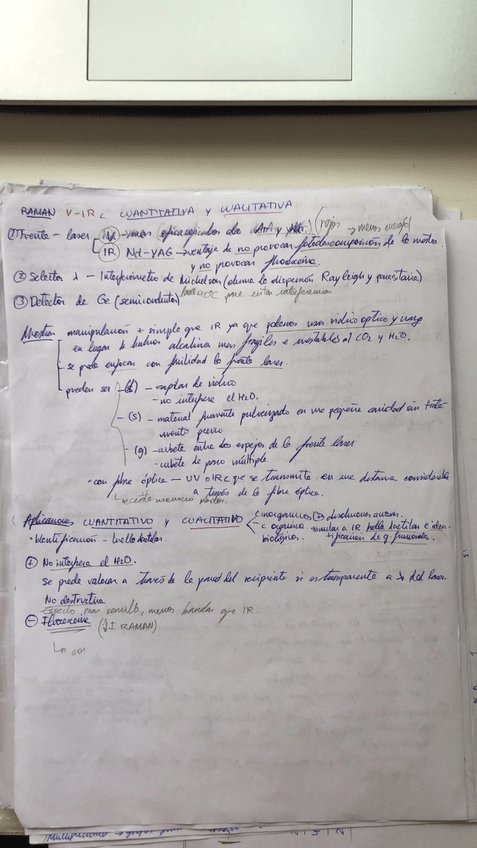 RAMAN V-IR c CUANTITATIVA Y CUALITATIVA
① Fuente - laser UV - mas Ar y (rojos → menos energía)
IR Nd-YAG → ventaja de no provocar fotodescomposición de la muestra
y no provocar fluorescencia
② Selector λ - Interferómetro de Michelson (elimina la dispersión Rayleigh y parasitaria)
③ Detector de Ge (semiconductor) para evitar interferencias
Muestra manipulación + simple que IR ya que podemos usar vidrio óptico y cuarzo
en lugar de haluros alcalinos mas frágiles e inestables al CO2 y H2O.
se puede enfocar con facilidad la fuente laser.
pueden ser (l) - capilar de vidrio
- no interfiere el H2O.
- (s) - material finamente pulverizado en una pequeña cavidad sin trata-
miento previo
- (g) - cubeta entre dos espejos de la fuente laser
- cubeta de paso múltiple.
- con fibra óptica - UV o IRc que se transmita en una distancia considerable
a través de la fibra óptica.
Aplicaciones CUANTITATIVO Y CUALITATIVO inorgánicos disoluciones acuosas.
• Identificación - huella dactilar. c orgánica similar a IR huella dactilar e iden-
biológicos. tificación de g funcionales.
⊕ No interfiere el H2O.
Se puede valorar a través de la pared del recipiente si es transparente a λ del laser
No destructiva
Espectro mas sencillo, menos bandas que IR.
⊖ Fluorescencia (↓I RAMAN)